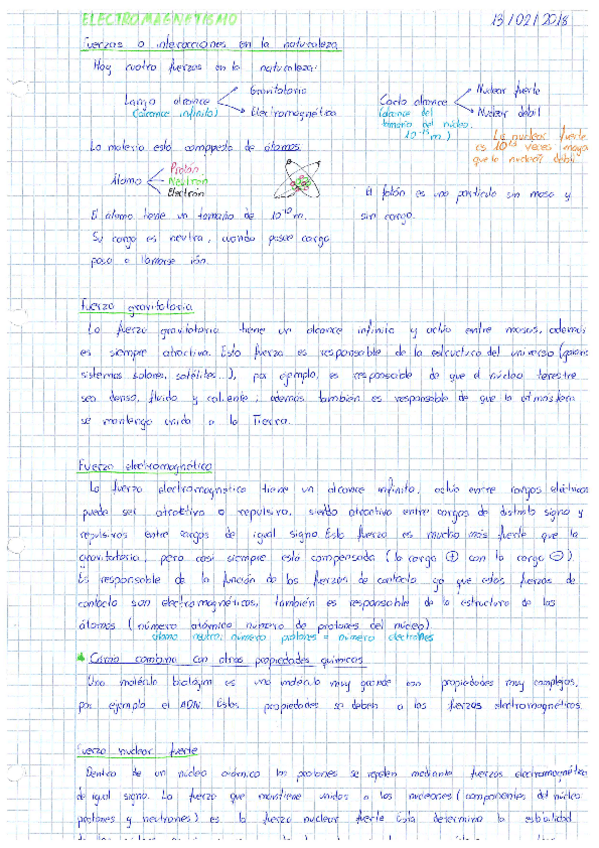 ELECTROMAGNETISMO 13/02/2018
Fuerzas o interacciones en la naturaleza
Hay cuatro fuerzas en la naturaleza:
Largo alcance Gravitatoria
(alcance infinito) Electromagnética
Corto alcance Nuclear fuerte
(alcance del Nuclear débil
tamaño del núcleo.
10⁻¹⁵ m)
La nuclear fuerte
es 10¹³ veces mayor
que la nuclear débil.
La materia está compuesta de átomos.
Átomo Protón
Neutrón
Electrón
El fotón es una partícula sin masa y
sin carga.
El átomo tiene un tamaño de 10⁻¹⁰ m.
Su carga es neutra, cuando posee carga
pasa a llamarse ión.
Fuerza gravitatoria
La fuerza gravitatoria tiene un alcance infinito y actúa entre masas, además
es siempre atractiva. Esta fuerza es responsable de la estructura del universo (
sistemas solares, satélites...), por ejemplo, es responsable de que el núcleo terrestre
sea denso, fluido y caliente; además también es responsable de que la atmósfera
se mantenga unida a la Tierra.
Fuerza electromagnética
La fuerza electromagnética tiene un alcance infinito, actúa entre cargas eléctricas
puede ser atractiva o repulsiva, siendo atractiva entre cargas de distinto signo y
repulsivas entre cargas de igual signo. Esta fuerza es mucho más fuerte que la
gravitatoria, pero casi siempre está compensada (la carga ⊕ con la carga ⊖).
Es responsable de la función de las fuerzas de contacto ya que estas fuerzas de
contacto son electromagnéticas, también es responsable de la estructura de los
átomos (número atómico número de protones del núcleo)
átomo neutro: número protones = número electrones
Cómo combina con otras propiedades químicas
Una molécula biológica es una molécula muy grande con propiedades muy complejas,
por ejemplo el ADN. Estas propiedades se deben a las fuerzas electromagnéticas.
Fuerza nuclear fuerte
Dentro de un núcleo atómico los protones se repelen mediante fuerzas electromagnética
de igual signo. La fuerza que mantiene unidos a los nucleones (componentes del núcleo
protones y neutrones) es la fuerza nuclear fuerte. Esta determina la estabilidad